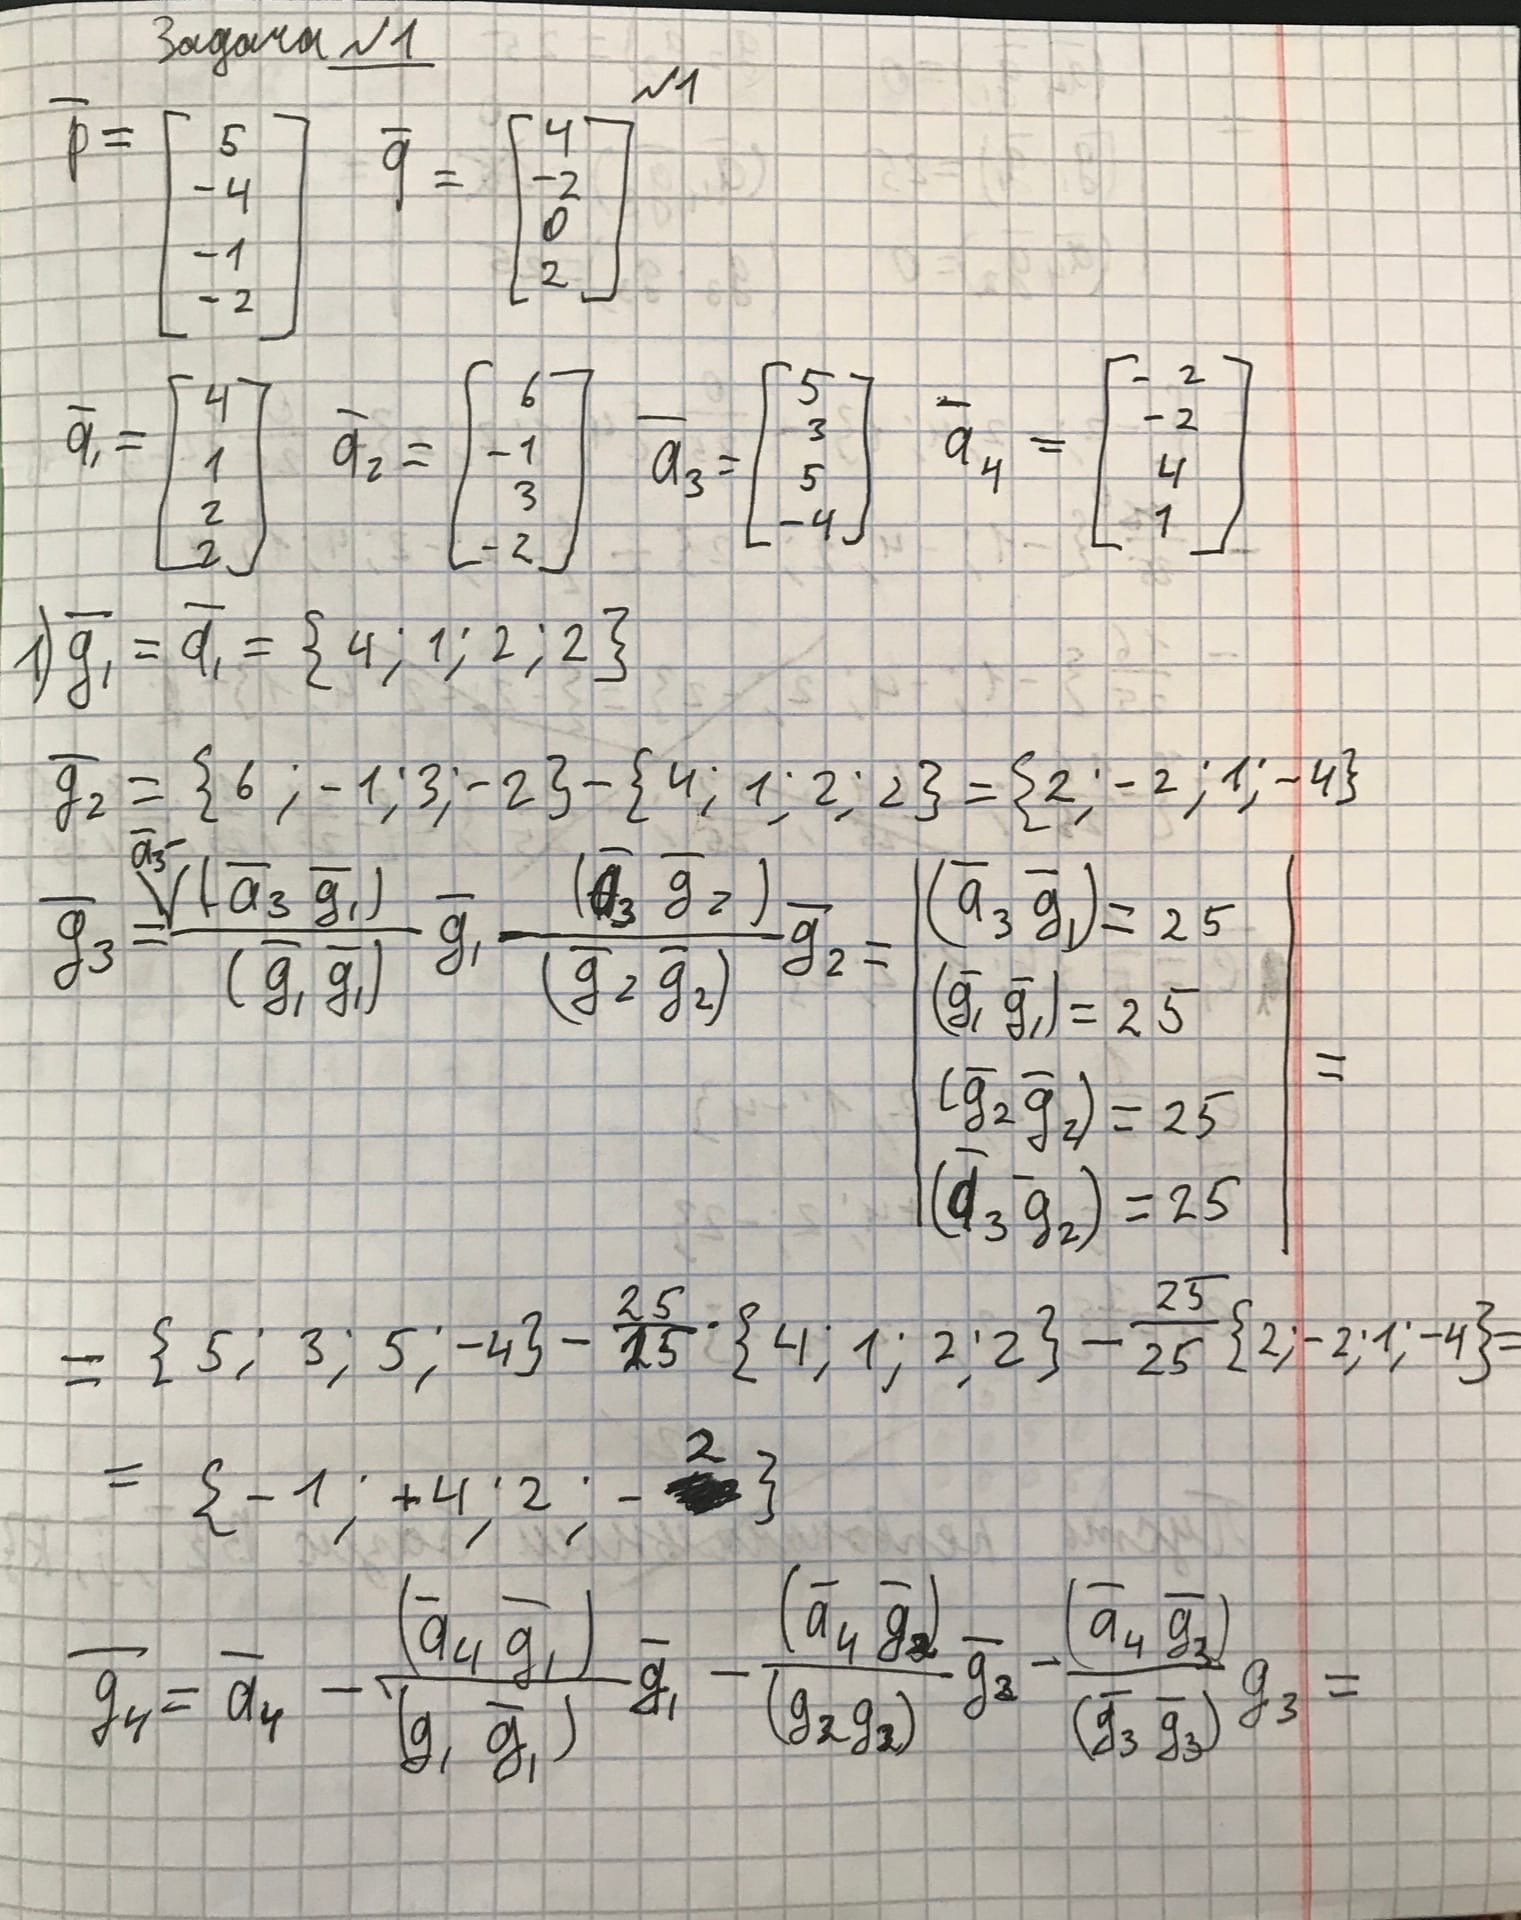 Задача №1
№1
p̅ = [5 -4 -1 -2] q̅ = [4 -2 0 2]
a̅₁ = [4 1 2 2] a̅₂ = [6 -1 3 -2] a̅₃ = [5 3 5 -4] a̅₄ = [-2 -2 4 1]
1) g̅₁ = a̅₁ = {4; 1; 2; 2}
g̅₂ = {6; -1; 3; -2} - {4; 1; 2; 2} = {2; -2; 1; -4}
g̅₃ = a̅₃ - (a̅₃ g̅₁)/(g̅₁ g̅₁) g̅₁ - (a̅₃ g̅₂)/(g̅₂ g̅₂) g̅₂ = | (a̅₃ g̅₁) = 25
(g̅₁ g̅₁) = 25
(g̅₂ g̅₂) = 25
(a̅₃ g̅₂) = 25 | =
= {5; 3; 5; -4} - 25/25 · {4; 1; 2; 2} - 25/25 {2; -2; 1; -4} =
= {-1; +4; 2; -2}
g̅₄ = a̅₄ - (a̅₄ g̅₁)/(g₁ g̅₁) g̅₁ - (a̅₄ g̅₂)/(g₂ g₂) g̅₂ - (a̅₄ g̅₃)/(g̅₃ g̅₃) g₃ =